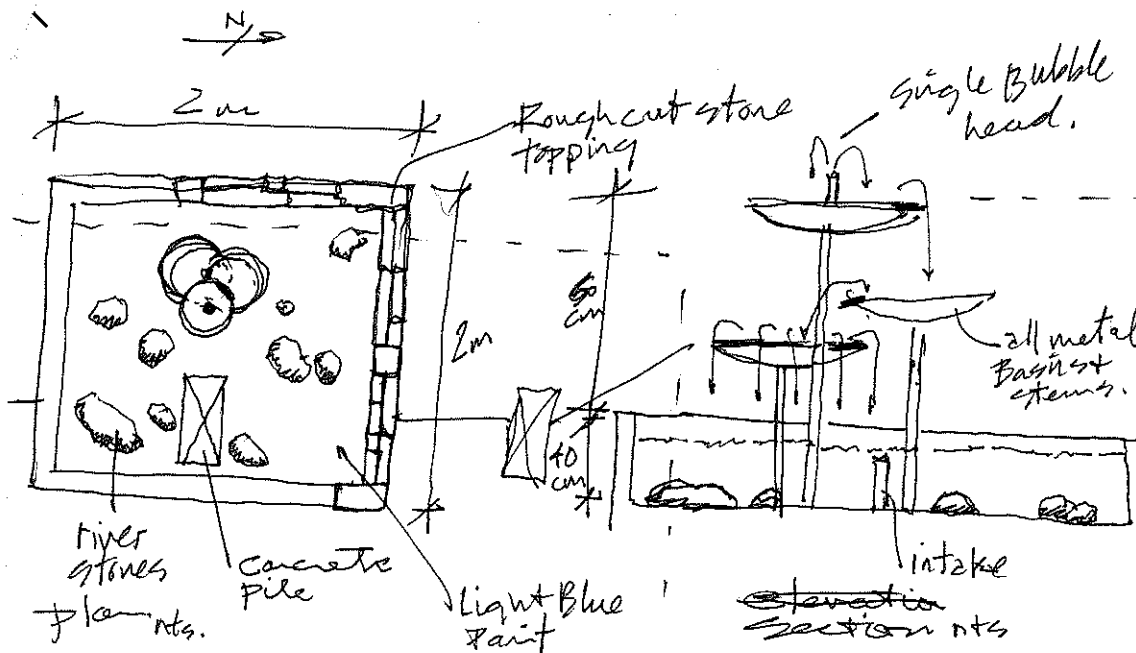 N
2m
Rough cut stone
topping
single Bubble
head.
2m
60
cm
40
cm
all metal
Basins &
stems.
river
stones
concrete
pile
Light Blue
Paint
intake
plan nts.
section nts